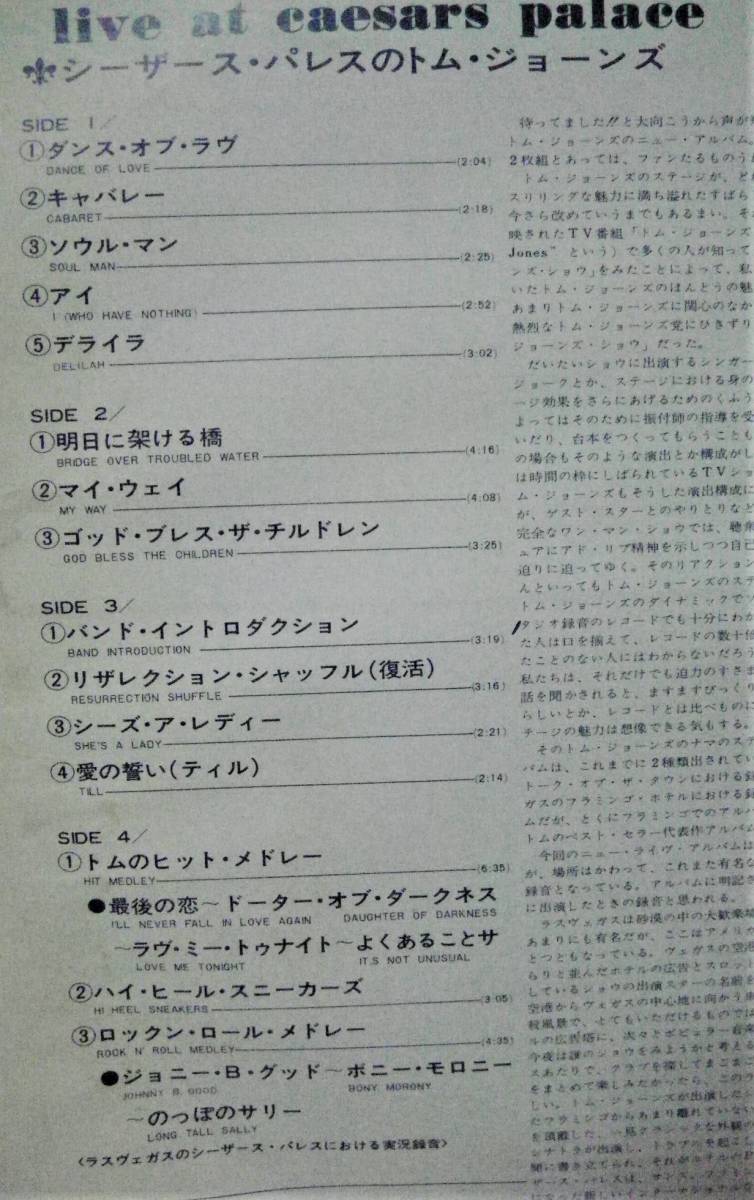 live at caesars palace
シーザース・パレスのトム・ジョーンズ
SIDE 1/
①ダンス・オブ・ラヴ
DANCE OF LOVE (2:04)
②キャバレー
CABARET (2:18)
③ソウル・マン
SOUL MAN (2:25)
④アイ
I (WHO HAVE NOTHING) (2:52)
⑤デライラ
DELILAH (3:02)
SIDE 2/
①明日に架ける橋
BRIDGE OVER TROUBLED WATER (4:16)
②マイ・ウェイ
MY WAY (4:08)
③ゴッド・ブレス・ザ・チルドレン
GOD BLESS THE CHILDREN (3:25)
SIDE 3/
①バンド・イントロダクション
BAND INTRODUCTION (3:19)
②リザレクション・シャッフル(復活)
RESURRECTION SHUFFLE (3:16)
③シーズ・ア・レディー
SHE'S A LADY (2:21)
④愛の誓い(ティル)
TILL (2:14)
SIDE 4/
①トムのヒット・メドレー
HIT MEDLEY (6:35)
●最後の恋~ドーター・オブ・ダークネス
I'LL NEVER FALL IN LOVE AGAIN DAUGHTER OF DARKNESS
~ラヴ・ミー・トゥナイト~よくあることサ
LOVE ME TONIGHT IT'S NOT UNUSUAL
②ハイ・ヒール・スニーカーズ
HI HEEL SNEAKERS (3:05)
③ロックン・ロール・メドレー
ROCK N' ROLL MEDLEY (4:35)
●ジョニー・B・グッド~ボニー・モロニー
JOHNNY B. GOOD BONY MORONY
~のっぽのサリー
LONG TALL SALLY
〈ラスヴェガスのシーザース・パレスにおける実況録音〉
待ってました!!と大向こうから声が
トム・ジョーンズのニュー・アルバム。
2枚組とあっては、ファンたるものう
トム・ジョーンズのステージが、ど
スリリングな魅力に満ち溢れたすばら
今さら改めていうまでもあるまい。そ
映されたTV番組「トム・ジョーンズ
Jones" という)で多くの人が知って
ンズ・ショウ」をみたことによって、私
いたトム・ジョーンズのほんとうの魅
あまりトム・ジョーンズに関心のなか
熱烈なトム・ジョーンズ党にひきずり
ジョーンズ・ショウ」だった。
だいたいショウに出演するシンガー
ジョークとか、ステージにおける身の
ージ効果をさらにあげるためのくふう
よってはそのために振付師の指導を受
いだり、台本をつくってもらうことも
の場合もそのような演出とか構成がし
は時間の枠にしばられているTVショ
ム・ジョーンズもそうした演出構成に
が、ゲスト・スターとのやりとりなど
完全なワン・マン・ショウでは、聴衆
ュアにアド・リブ精神を示しつつ自己
迫りに迫ってゆく。そのリアクション
んといってもトム・ジョーンズのステ
トム・ジョーンズのダイナミックで
タジオ録音のレコードでも十分にわか
た人は口を揃えて、レコードの数十倍
たことのない人にはわからないだろう
私たちは、それだけでも迫力のすさま
話を聞かされると、ますますびっくり
らしいとか、レコードとは比べものに
テージの魅力は想像できる気もする。
そのトム・ジョーンズのナマのステ
バムは、これまでに2種類出されてい
トーク・オブ・ザ・タウンにおける録
ガスのフラミンゴ・ホテルにおける録
ムだが、とくにフラミンゴでのアルバ
トムのベスト・セラー代表作アルバム
今回のニュー・ライヴ・アルバムは
が、場所はかわって、これまた有名な
録音となっている。アルバムに明記さ
に出演したときの録音と思われる。
ラスヴェガスは砂漠の中の大歓楽境
あまりにも有名だが、ここはアメリカ
とつともなっている。ヴェガスの空港
らりと並んだホテルの広告とスロット
しているショウの出演スターの名前を
空港からヴェガスの中心地に向かう